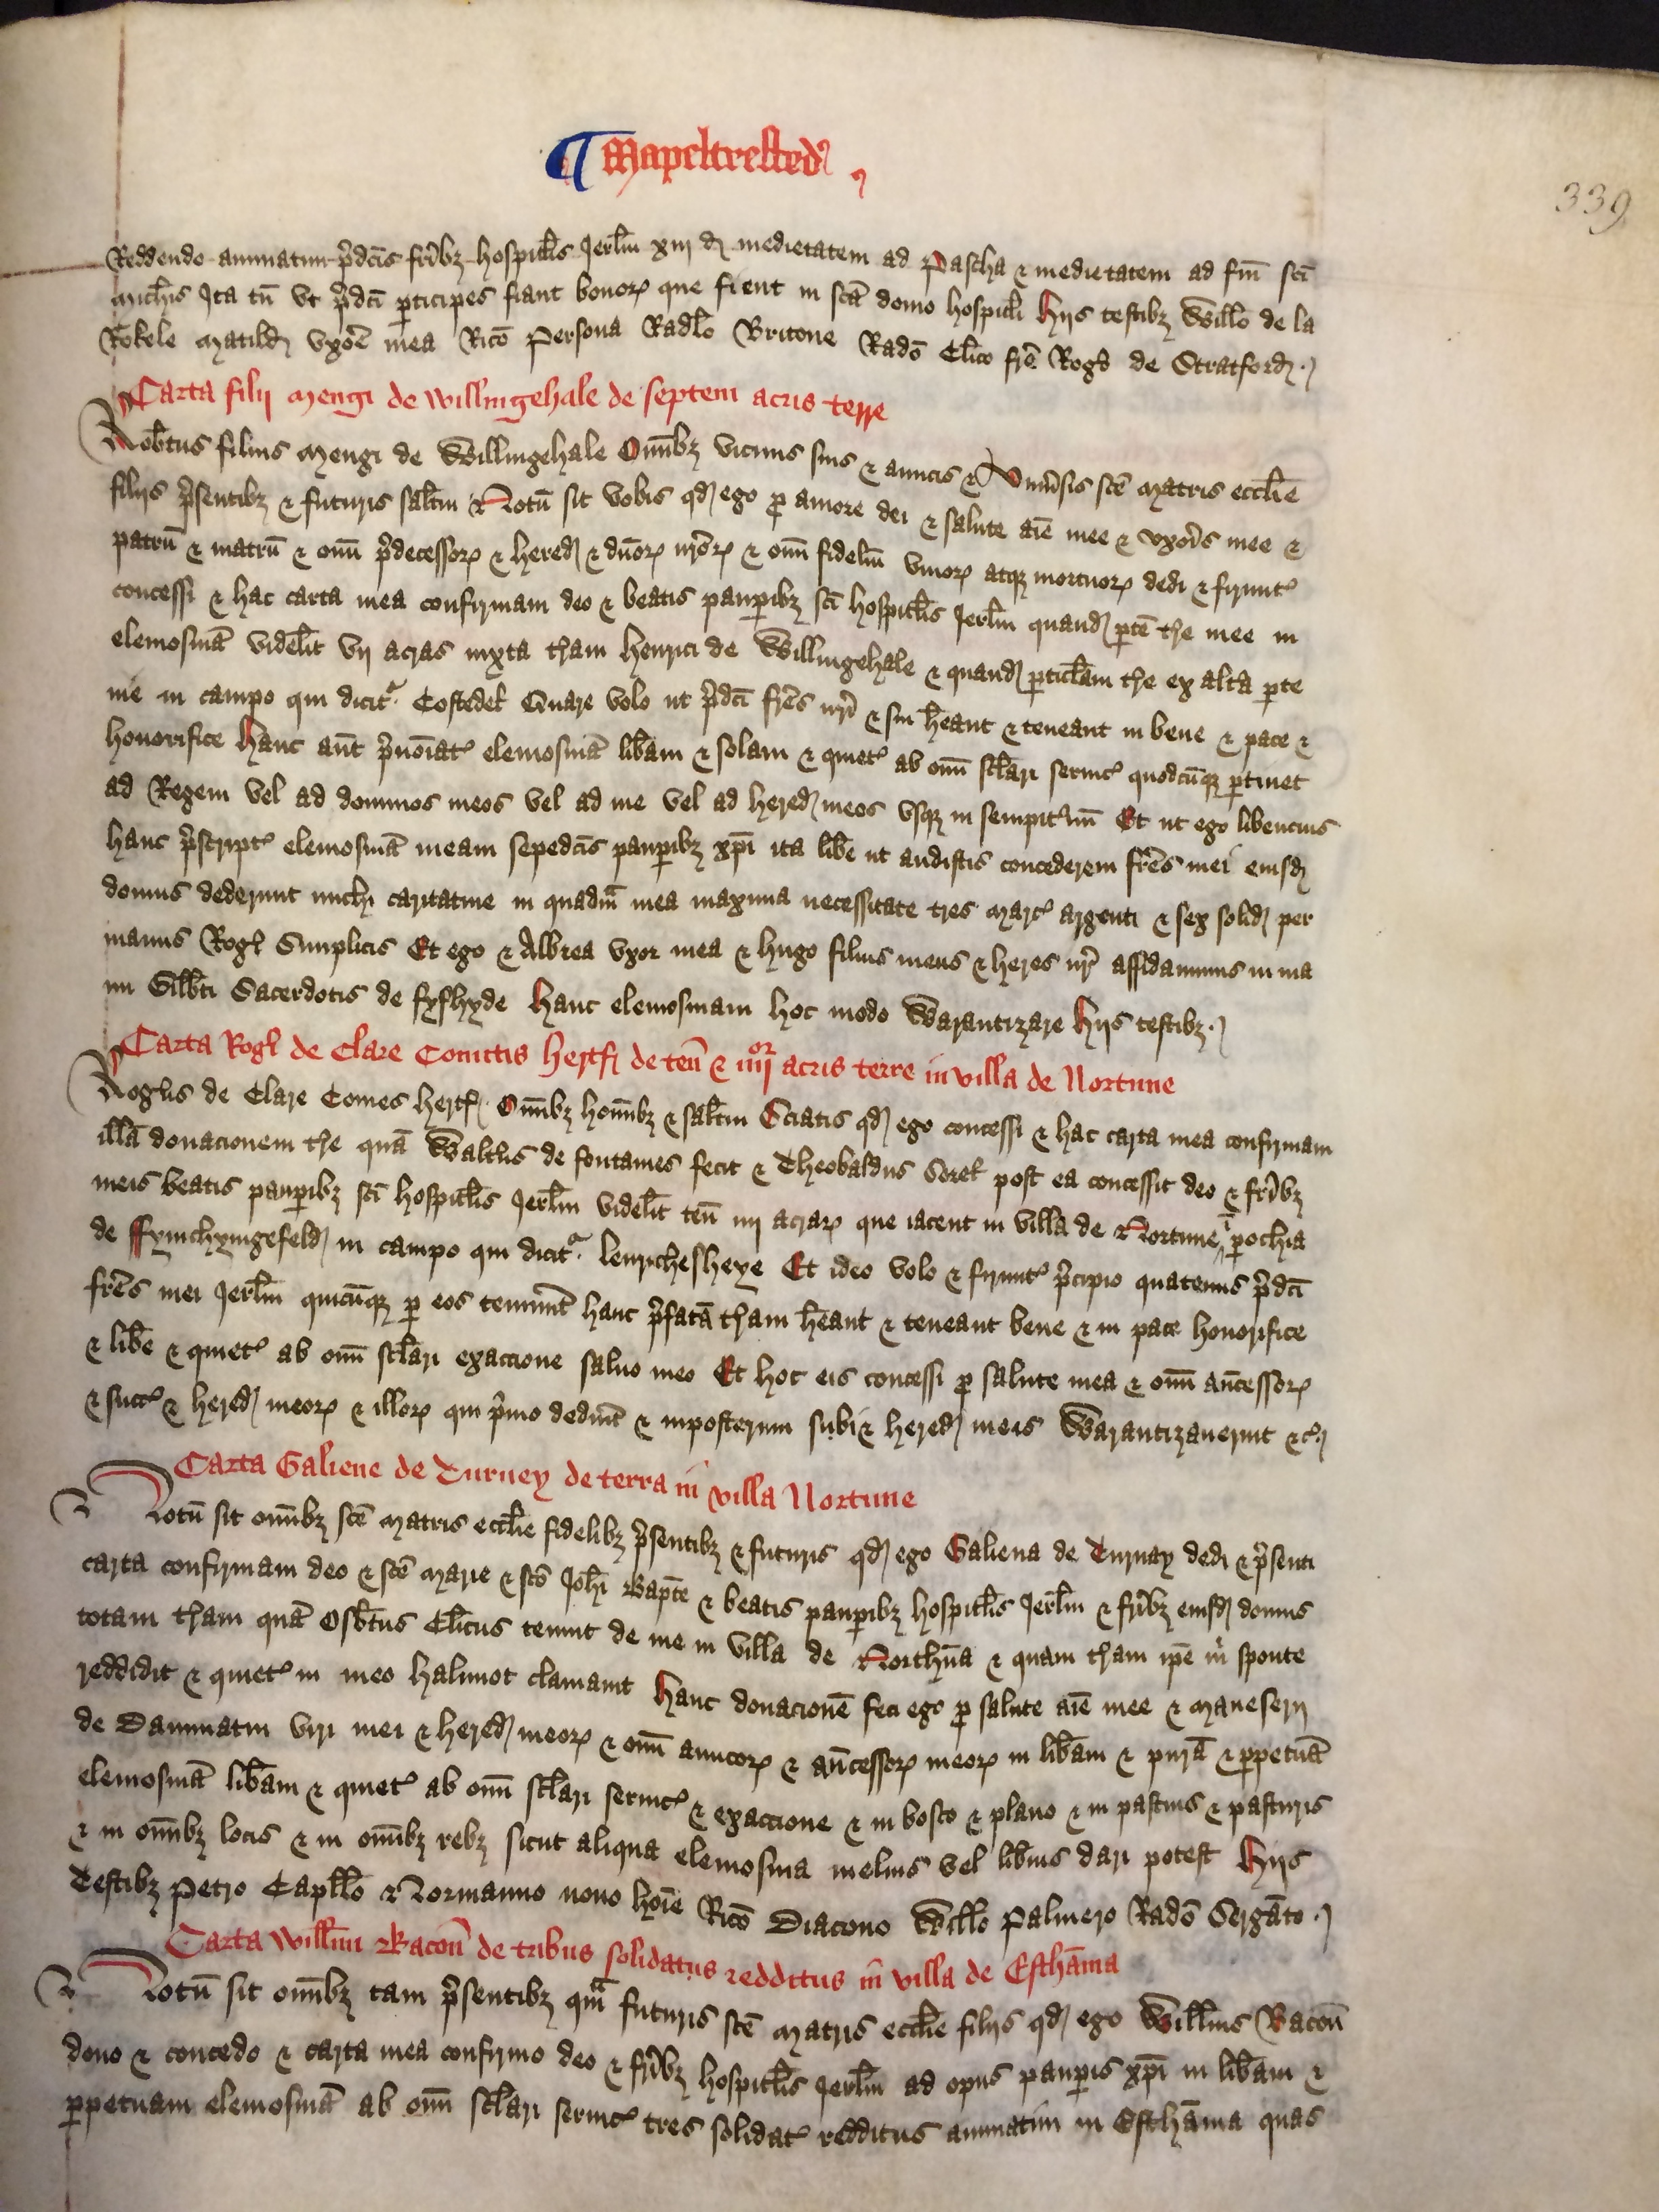 ¶ Mapeltrested
339
Reddendo annuatim p̄dcis fr̄ibȝ hospitl̄is Jerl̄m xiij đ medietatem ad Pascha ⁊ medietatem ad fm̄ sc̄i
Mich̄is Ita tn̄ vt p̄dc̄i ꝑticipes fiant bonorꝝ que fient in sc̄a domo hospitl̄i Hijs testibȝ Willo de la
Rokele Matild vxor̄e mea Ric̄o Persona Radl̄o Britone Rado Cl̄ico fr̄e Rogi de Stratford
Carta filij Mengi de Willingehale de septem acris terre
Rob̄tus filius Mengi de Willingehale Om̄ibȝ vicinis suis ⁊ amicis ⁊ Vniu̓sis sc̄e Matris eccl̄ie
filijs p̄sentibȝ ⁊ futuris sal̄tm Notū sit vobis qđ ego ꝓ amore dei ⁊ salute aīe mee ⁊ vxor̄is mee ⁊
patrū ⁊ matrū ⁊ om̄i p̄decessorꝝ ⁊ hered ⁊ dn̄orꝝ nr̄orꝝ ⁊ om̄i fideliū viuorꝝ atqȝ mortuorꝝ dedi ⁊ firmit̓
concessi ⁊ hac carta mea confirmam deo ⁊ beatis pauꝑibȝ sc̄i hospitl̄is Jerl̄m quand ꝑtē tr̄e mee in
elemosinā videl̄it vij acras iuxta tr̄am Henrici de Willingehale ⁊ quand ꝑticl̄am tr̄e ex alta ꝑte
me in campo qui dicit̓ Costedel Quare volo ut p̄dc̄i fr̄es nr̄i ⁊ sui hēant ⁊ teneant in bene ⁊ pace ⁊
honorifice Hanc aūt p̄noīat̓ elemosinā lib̄am ⁊ solam ⁊ quiet̓ ab om̄i scl̄ari seruic̓ quodcūqȝ ꝑtinet
ad Regem vel ad dominos meos vel ad me vel ad hered meos vsqȝ in sempit̓nū Et ut ego libencius
hanc p̄script̓ elemosinā meam sepedc̄is pauꝑibȝ xp̄i ita lib̄e ut audistis concederem fr̄es mei eiusd
domus dederunt michi caritatiue in quadā mea maxima necessitate tres marc̓ argenti ⁊ sex solid per
manus Rogi Simplicis Et ego ⁊ Albrea vxor mea ⁊ Hugo filius meus ⁊ heres nr̄ affidauimus in ma
nu Gilb̄ti Sacerdotis de fyfhyde Hanc elemosinam hoc modo Warantizare Hijs testibȝ
Carta Rogi de Clare Comitis Hertf de ten̄ ⁊ iiijor acris terre in villa de Nortune
Rog̓us de Clare Comes Hertf Om̄ibȝ hom̄ibȝ ⁊ sal̄tm Sciatis qđ ego concessi ⁊ hac carta mea confirmam
illā donacionem tr̄e quā Walt̄us de fontaines fecit ⁊ Theobaldus Sorel post ea concessit deo ⁊ fr̄ibȝ
meis beatis pauꝑibȝ sc̄i hospitl̄is Jerl̄m videl̄it ten̄ iiij acrarꝝ que iacent in villa de Nortune ī ꝑochia
de Ffynchyngefeld in campo qui dicit̓ Leurichesheye Et ideo volo ⁊ firmit̓ p̄cipio quatenus p̄dc̄i
fr̄es mei Jerl̄m quicūqȝ ꝑ eos tenuīt hanc p̄fatā tr̄am hēant ⁊ teneant bene ⁊ in pace honorifice
⁊ lib̄e ⁊ quiet̓ ab om̄i scl̄ari exaccione saluo meo Et hoc eis concessi ꝓ salute mea ⁊ om̄i an̄cessorꝝ
⁊ succ̓ ⁊ hered meorꝝ ⁊ illorꝝ qui p̄mo dedīt ⁊ inposterum subi ⁊ hered meis Warantizauerint ⁊c̓
Carta Galiene de Turney de terra in villa Nortune
Notū sit om̄ibȝ sc̄e Matris eccl̄ie fidelibȝ p̄sentibȝ ⁊ futuris qđ ego Galiena de Turnay dedi ⁊ p̄senti
carta confirmam deo ⁊ sc̄e Marie ⁊ sc̄o Joh̄i Bapt̄e ⁊ beatis pauꝑibȝ hospitl̄is Jerl̄m ⁊ fr̄ibȝ eiusd domus
totam tr̄am quā Osb̄tus Cl̄icus tenuit de me in villa de Northūa ⁊ quam tr̄am ip̄e m̄ sponte
reddidit ⁊ quiet̓ in meo halimot clamauit Hanc donacionē feci ego ꝓ salute aīe mee ⁊ Maneserij
de Dammatin viri mei ⁊ hered meorꝝ ⁊ om̄i amicorꝝ ⁊ an̄cessorꝝ meorꝝ in lib̄am ⁊ purā ⁊ ꝑpetuā
elemosinā lib̄am ⁊ quiet̓ ab om̄i scl̄ari seruic̓ ⁊ exaccione ⁊ in bosco ⁊ plano ⁊ in pascuis ⁊ pasturis
⁊ in om̄ibȝ locis ⁊ in om̄ibȝ rebȝ sicut aliqua elemosina melius vel lib̄ius dari potest Hijs
Testibȝ Petro Capll̄o Normanno nouo hoīe Ric̄o Diacono Willo Palmero Rado Sergāto
Carta Willm̄i Bacoun de tribus solidatus redditus in villa de Esthāma
Notū sit om̄ibȝ tam p̄sentibȝ qm̄ futuris sc̄e Matris eccl̄ie filijs qđ ego Willm̄us Bacoun
dono ⁊ concedo ⁊ carta mea confirmo deo ⁊ fr̄ibȝ hospitl̄is Jerl̄m ad opus pauꝑis xp̄i in lib̄am ⁊
ꝑpetuam elemosinā ab om̄i scl̄ari seruic̓ tres solidat̓ redditus annuatim in Esthāma quas